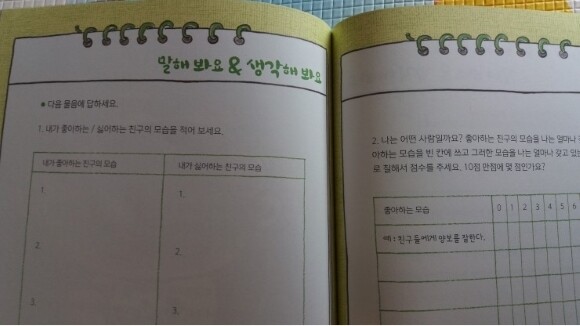 말해 봐요 & 생각해 봐요
* 다음 물음에 답하세요.
1. 내가 좋아하는 / 싫어하는 친구의 모습을 적어 보세요.
내가 좋아하는 친구의 모습 내가 싫어하는 친구의 모습
1. 1.
2. 2.
3. 3.
2. 나는 어떤 사람일까요? 좋아하는 친구의 모습을 나는 얼마나
아하는 모습을 빈 칸에 쓰고 그러한 모습을 나는 얼마나 갖고 있는
로 칠해서 점수를 주세요. 10점 만점에 몇 점인가요?
좋아하는 모습 0 1 2 3 4 5 6
예 : 친구들에게 양보를 잘한다.